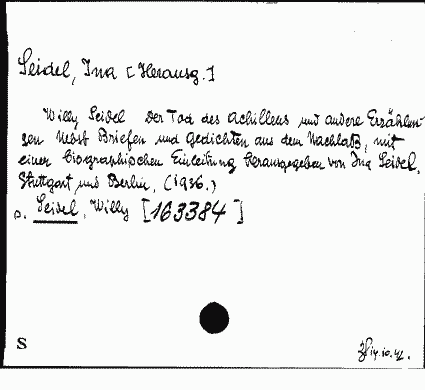 Seidel, Ina [Herausg.]
Willy Seidel Der Tod des Achilleus und andere Erzählun-
gen nebst Briefen und Gedichten aus dem Nachlaß, mit
einer biographischen Einleitung herausgegeben von Ina Seidel.
Stuttgart und Berlin, (1936.)
s. Seidel, Willy [163384]
S
14.10.42.